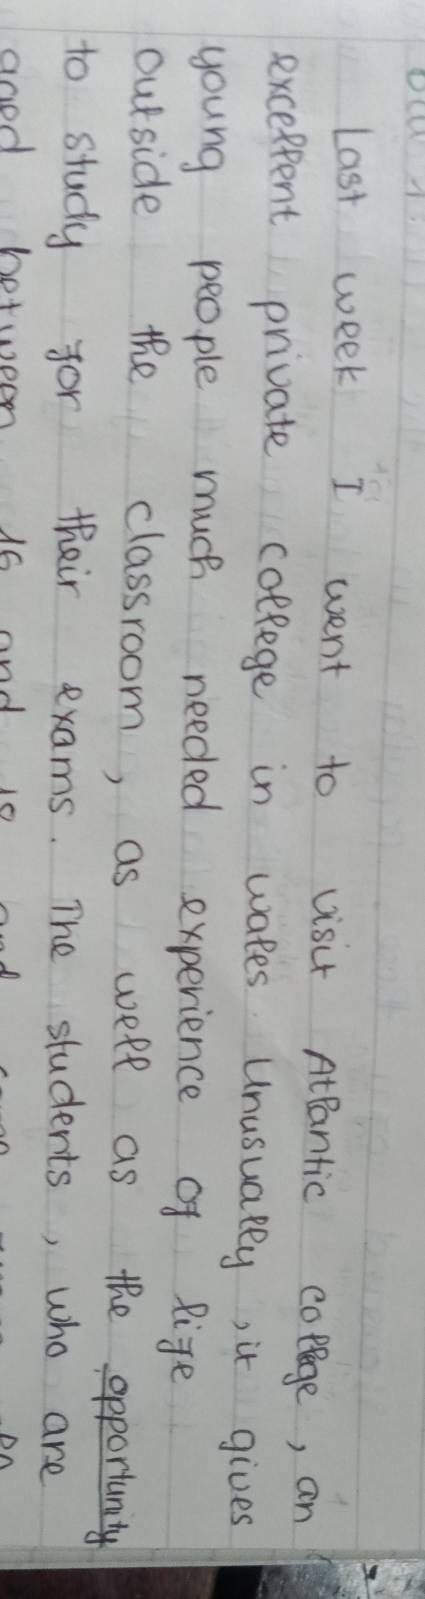 Last week I went to visit Atlantic college, an
excellent private college in wales. Unusually, it gives
young people much needed experience of life
outside the classroom, as well as the opportunity
to study for their exams. The students, who are
aged between 16 and 18 and